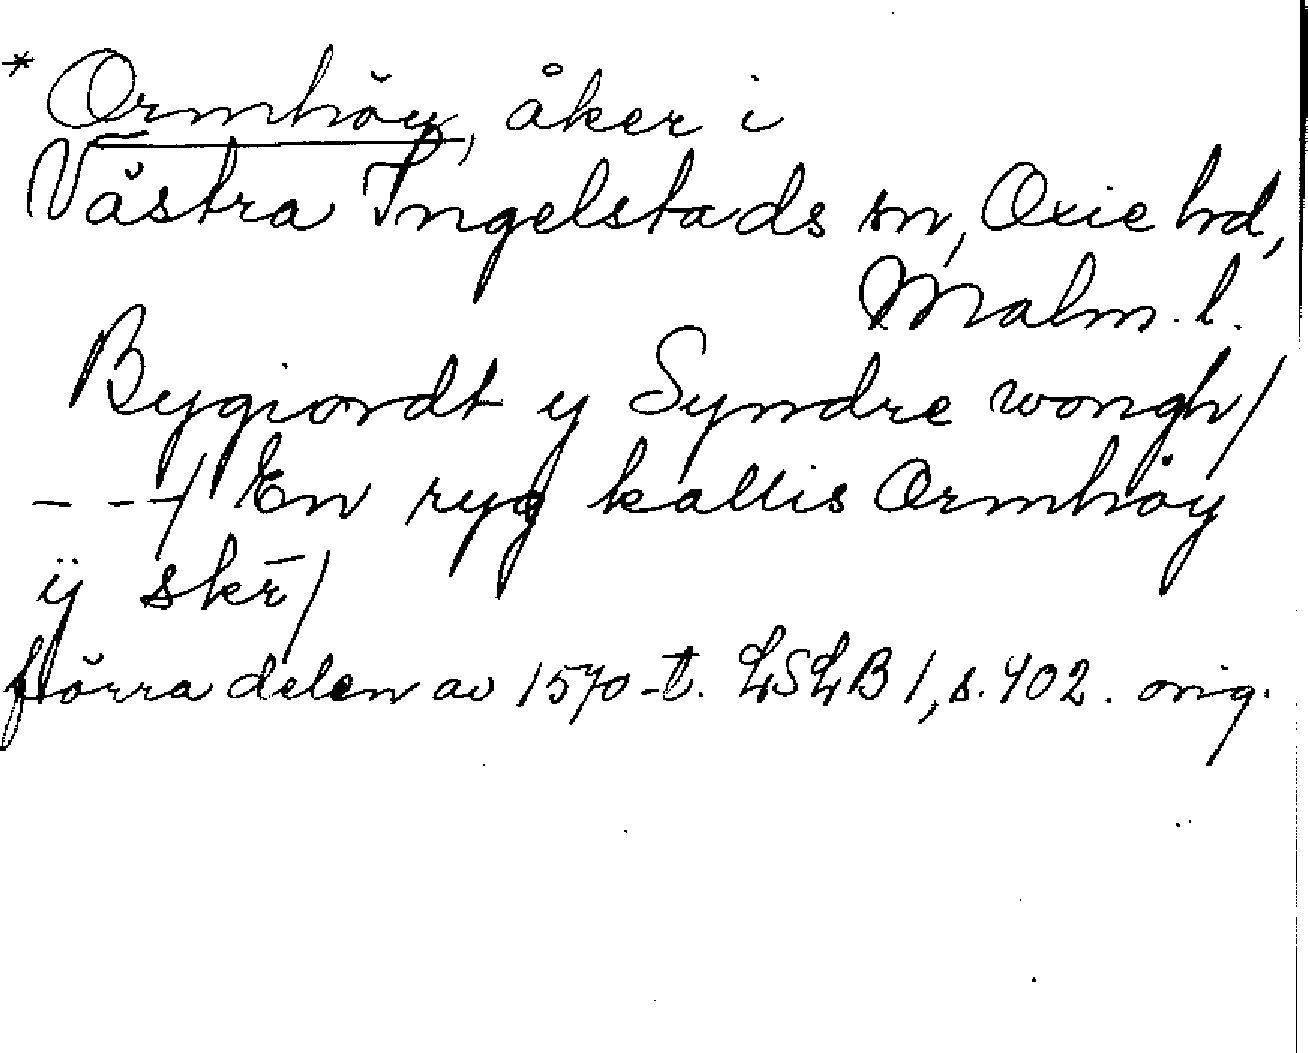 * Ormhöy, åker i
Västra Ingelstads sn, Oxie hd,
Malm. l.
Bygiordt y Syndre wongh/
- - -/ En ryg kallis Ormhøy
ÿ skr̄/
förra delen av 1570-t. LSLB 1, s. 402. orig.